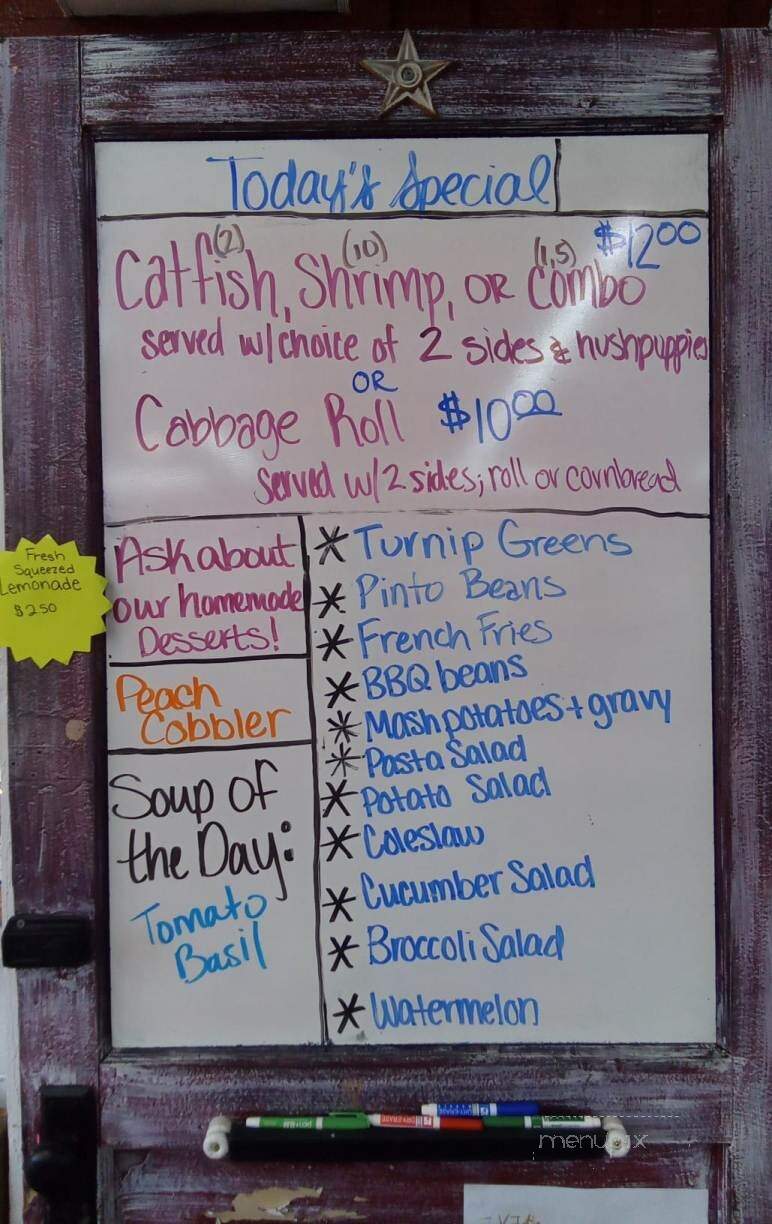 Today's Special
(2) (10) (1,5) $12.00
Catfish, Shrimp, OR Combo
served w/choice of 2 sides & hushpuppies
OR
Cabbage Roll $10.00
Served w/2 sides; roll or cornbread
Ask about
our homemade
Desserts!
Peach
Cobbler
Soup of
the Day:
Tomato
Basil
* Turnip Greens
* Pinto Beans
* French Fries
* BBQ beans
* Mash potatoes + gravy
* Pasta Salad
* Potato Salad
* Coleslaw
* Cucumber Salad
* Broccoli Salad
* Watermelon
Fresh
Squeezed
Lemonade
$2.50
menupix